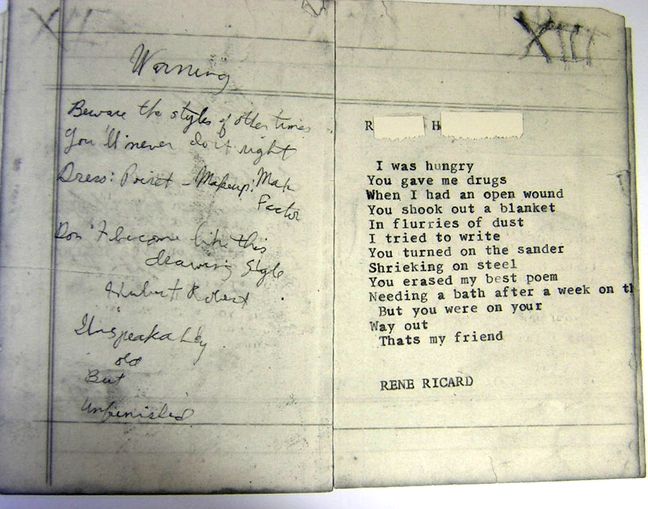 XIII
Warning
Beware the styles of other times
You'll never do it right
Dress: Poiret - Makeup: Max
Factor
Don't become like this
drawing style
Hubert Robert
Unspeakably
old
But
unfinished
XIII
R H
I was hungry
You gave me drugs
When I had an open wound
You shook out a blanket
In flurries of dust
I tried to write
You turned on the sander
Shrieking on steel
You erased my best poem
Needing a bath after a week on th
But you were on your
Way out
Thats my friend
RENE RICARD